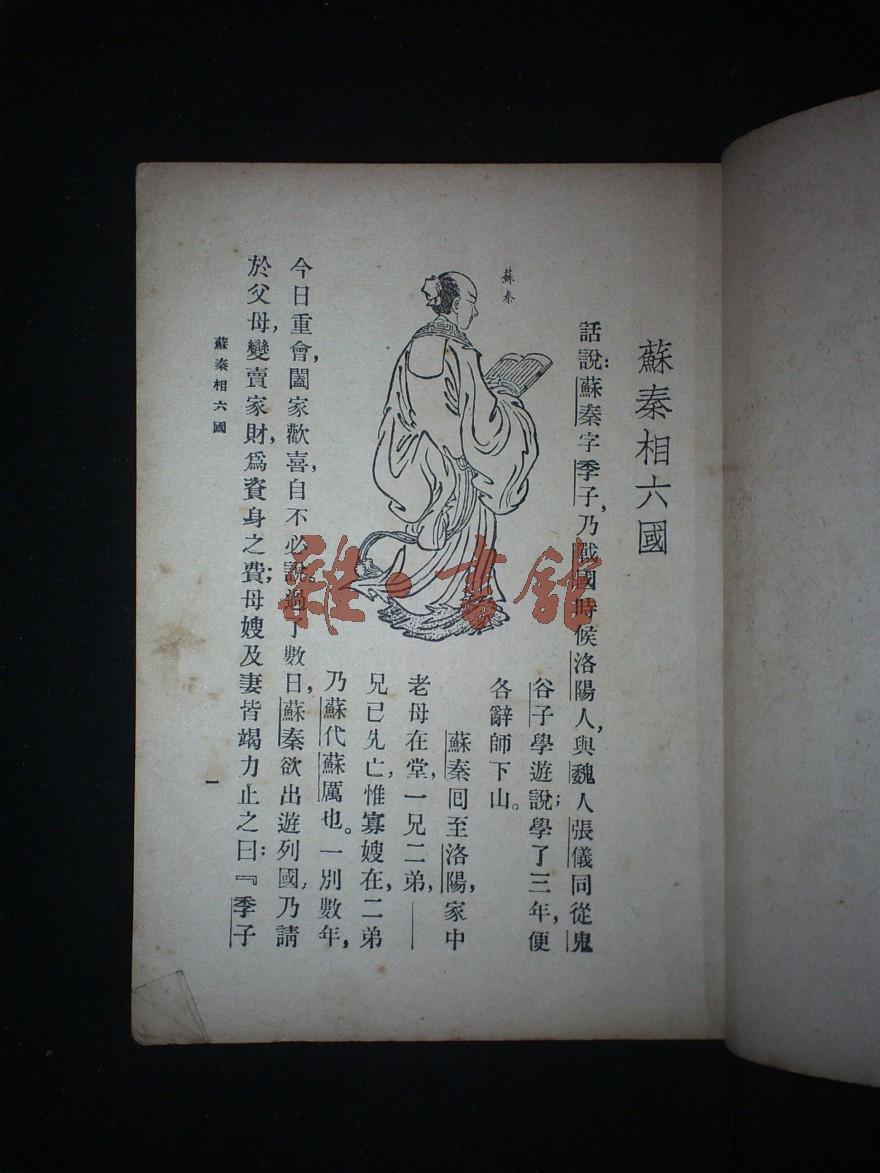 蘇秦相六國
話說：蘇秦字季子，乃戰國時候洛陽人，與魏人張儀同從鬼
谷子學遊說；學了三年，便
各辭師下山。
蘇秦回至洛陽，家中
老母在堂，一兄二弟，——
兄已先亡，惟寡嫂在，二弟
乃蘇代蘇厲也。一別數年，
今日重會，闔家歡喜，自不必說。過了數日，蘇秦欲出遊列國，乃請
於父母，變賣家財，爲資身之費；母嫂及妻皆竭力止之曰：『季子
蘇秦
蘇秦相六國
一
雜·書館